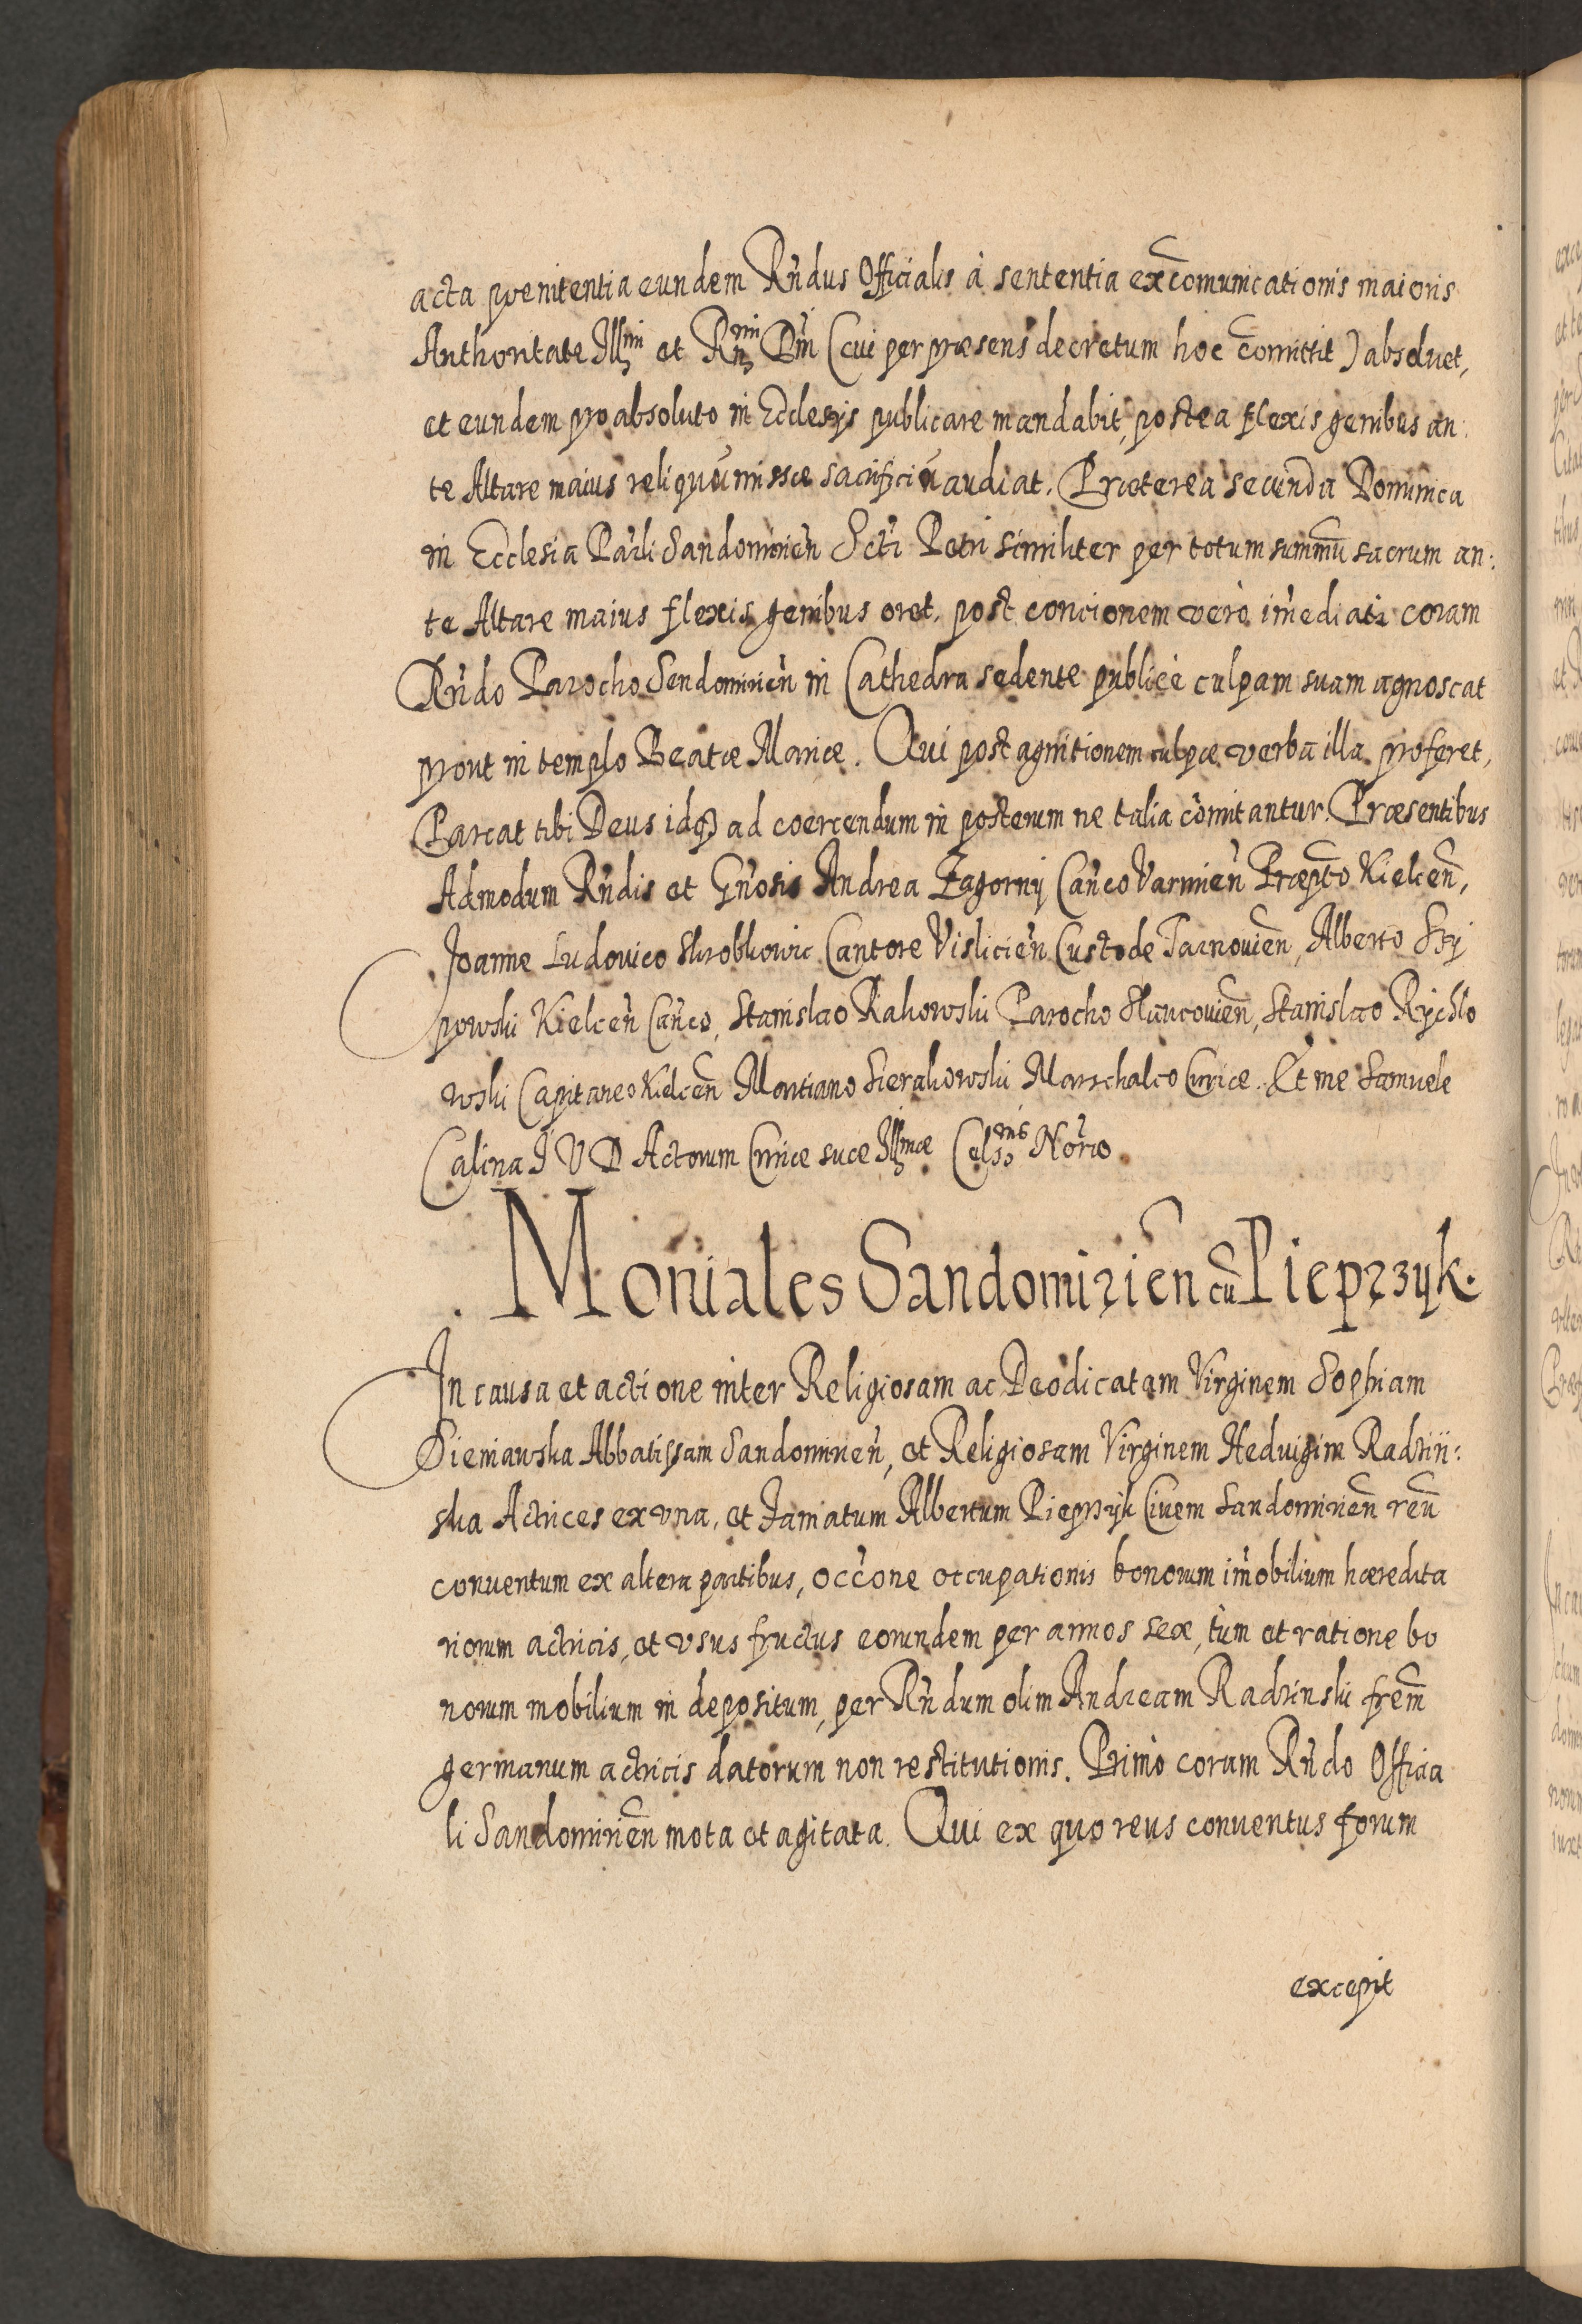 acta pœnitentia eundem Rñdus Officialis à sententia excõmunicationis maioris
Authoritate Illmi et Rmi Dni (cui per præsens decretum hoc cõmittit) absoluet,
et eundem pro absoluto in Ecclesijs publicare mandabit, postea flexis genibus an:
te Altare maius reliquũ missæ sacrificiũ audiat. Præterea secunda Dominica
in Ecclesia Parli Sandomirien̄ Scti Petri similiter per totum summũ sacrum an:
te Altare maius flexis genibus oret, post concionem verò im̃ediatè coram
Rñdo Parocho Sendomirien̄ in Cathedra sedente publicè culpam suam agnoscat
prout in templo Beatæ Mariæ. Qui post agnitionem culpæ verba illa proferet,
Parcat tibi Deus idq3 ad coercendum in posterum ne talia com̃itantur. Præsentibus
Admodum Rñdis et Gñosis Andrea Zagorny Cañco Varmien̄ Præpto Kielcen̄,
Joanne Ludovico Skrobkowic Cantore Vislicien̄ Custode Tarnouien̄, Alberto Szy
powski Kielcen̄ Cañco, Stanislao Rakowski Parocho Slaucouien̄, Stanislao Rychlo
wski Capitaneo Kielcen̄ Martiano Sierakowski Marschalco Curiæ. Et me Samuele
Calina J V D Actorum Curiæ suæ Illmæ Celsnis Norio
Moniales Sandomirien̄ cũ Pieprzyk.
In causa et actione inter Religiosam ac Deodicatam Virginem Sophiam
Sieniawska Abbatissam Sandomirien̄, et Religiosam Virginem Hedvigim Radzin:
ska Actrices ex vna, et Famatum Albertum Pieprzyk Ciuem Sandomirien̄ reũ
conuentum ex altera partibus, occõne occupationis bonorum im̃obilium hæredita
riorum actricis, et vsus fructus eorundem per annos sex, tùm et ratione bo
norum mobilium in depositum, per Rñdum olim Andream Radzinski frem̃
germanum actricis datorum non restitutionis. Primò coram Rñdo Officia
li Sandomirien̄ mota et agitata. Qui ex quo reus conuentus forum
excepit